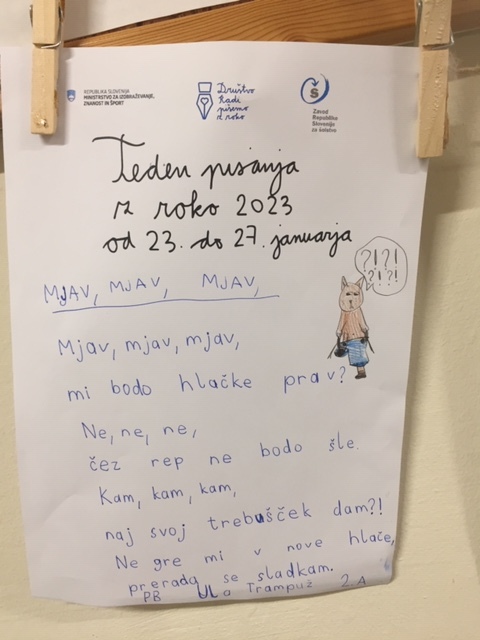 REPUBLIKA SLOVENIJA
MINISTRSTVO ZA IZOBRAŽEVANJE,
ZNANOST IN ŠPORT
Društvo
Radi
pišemo
z roko
Zavod
Republike
Slovenije
za šolstvo
Teden pisanja
z roko 2023
od 23. do 27. januarja
MJAV, MJAV, MJAV,
?!?!
?!?!
Mjav, mjav, mjav,
mi bodo hlačke prav?
Ne, ne, ne,
čez rep ne bodo šle.
Kam, kam, kam,
naj svoj trebušček dam?!
Ne gre mi v nove hlače,
prerada se sladkam.
PB Ula Trampuž 2.A